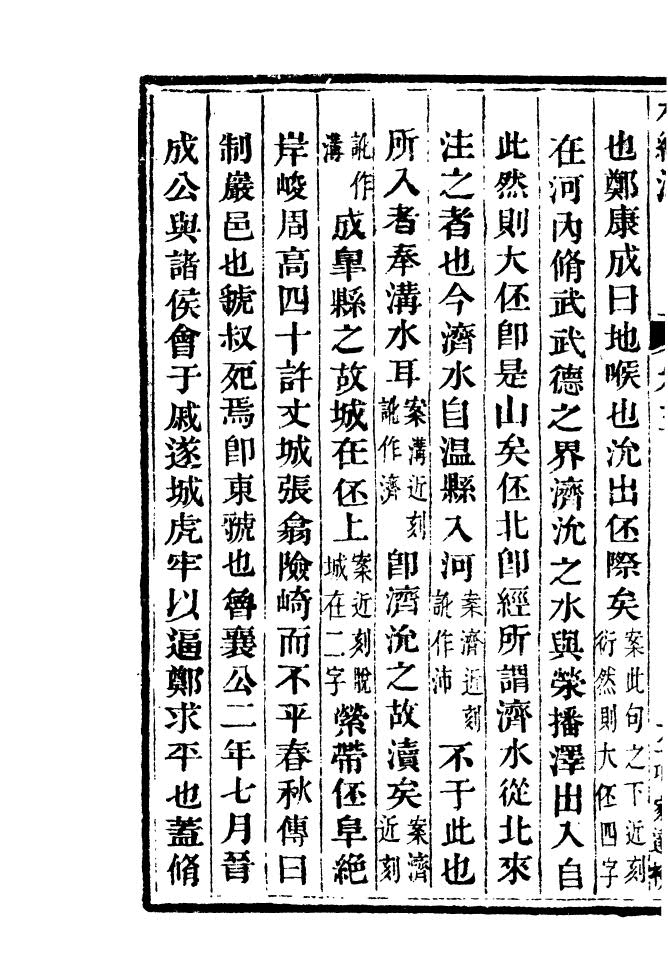 也鄭康成曰地喉也沇出伾際矣案此句之下近刻衍然則大伾四字
在河內脩武武德之界濟沇之水與滎播澤出入自
此然則大伾卽是山矣伾北卽經所謂濟水從北來
注之者也今濟水自溫縣入河案濟近刻訛作沛不于此也
所入者奉溝水耳案溝近刻訛作濟卽濟沇之故瀆矣案濟近刻
訛作溝成臯縣之故城在伾上案近刻脫城在二字縈帶伾阜絕
岸峻周高四十許丈城張翕險崎而不平春秋傳曰
制巖邑也虢叔死焉卽東虢也魯襄公二年七月晉
成公與諸侯會于戚遂城虎牢以逼鄭求平也蓋脩